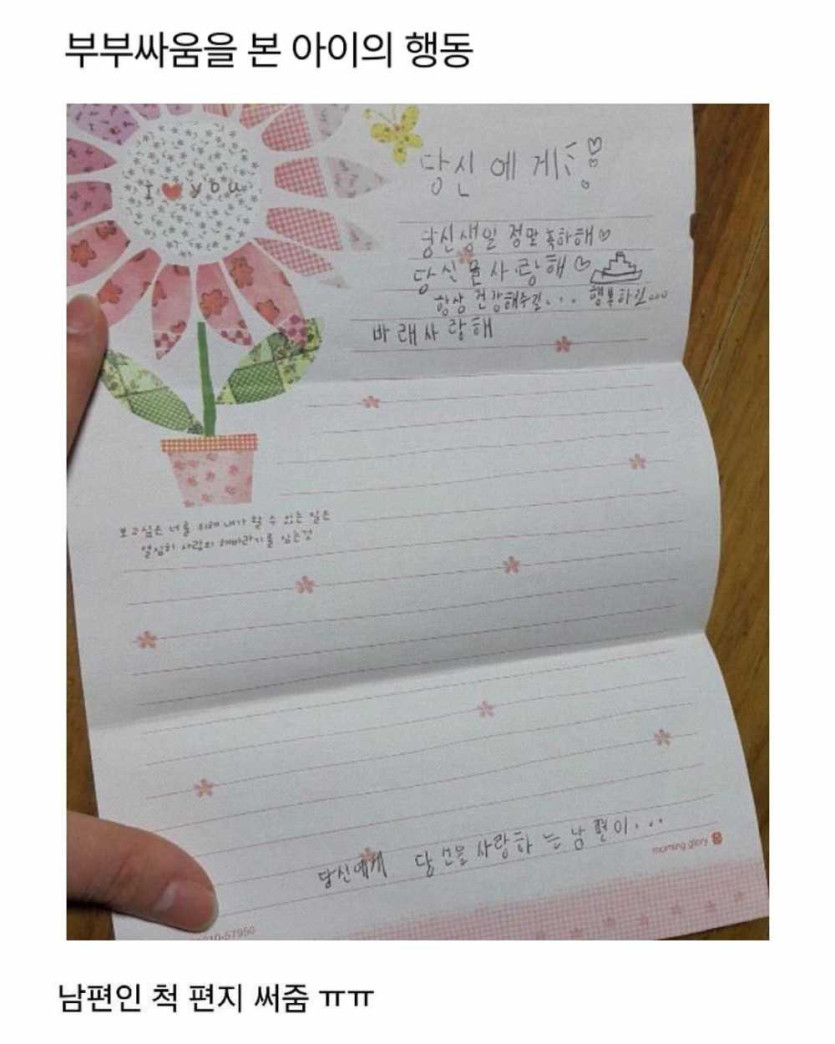 부부싸움을 본 아이의 행동
I ♥ you
당신에게
당신생일 정말 축하해♡
당신을사랑해♡
항상 건강해수길... 행복하길...
바래사랑해
보고싶은 너를 위해 내가 할 수 있는 일은
열심히 사랑의 해바라기를 심는것
당신에게 당신을 사랑하는남편이...
morning glory
57950
남편인 척 편지 써줌 ㅠㅠ